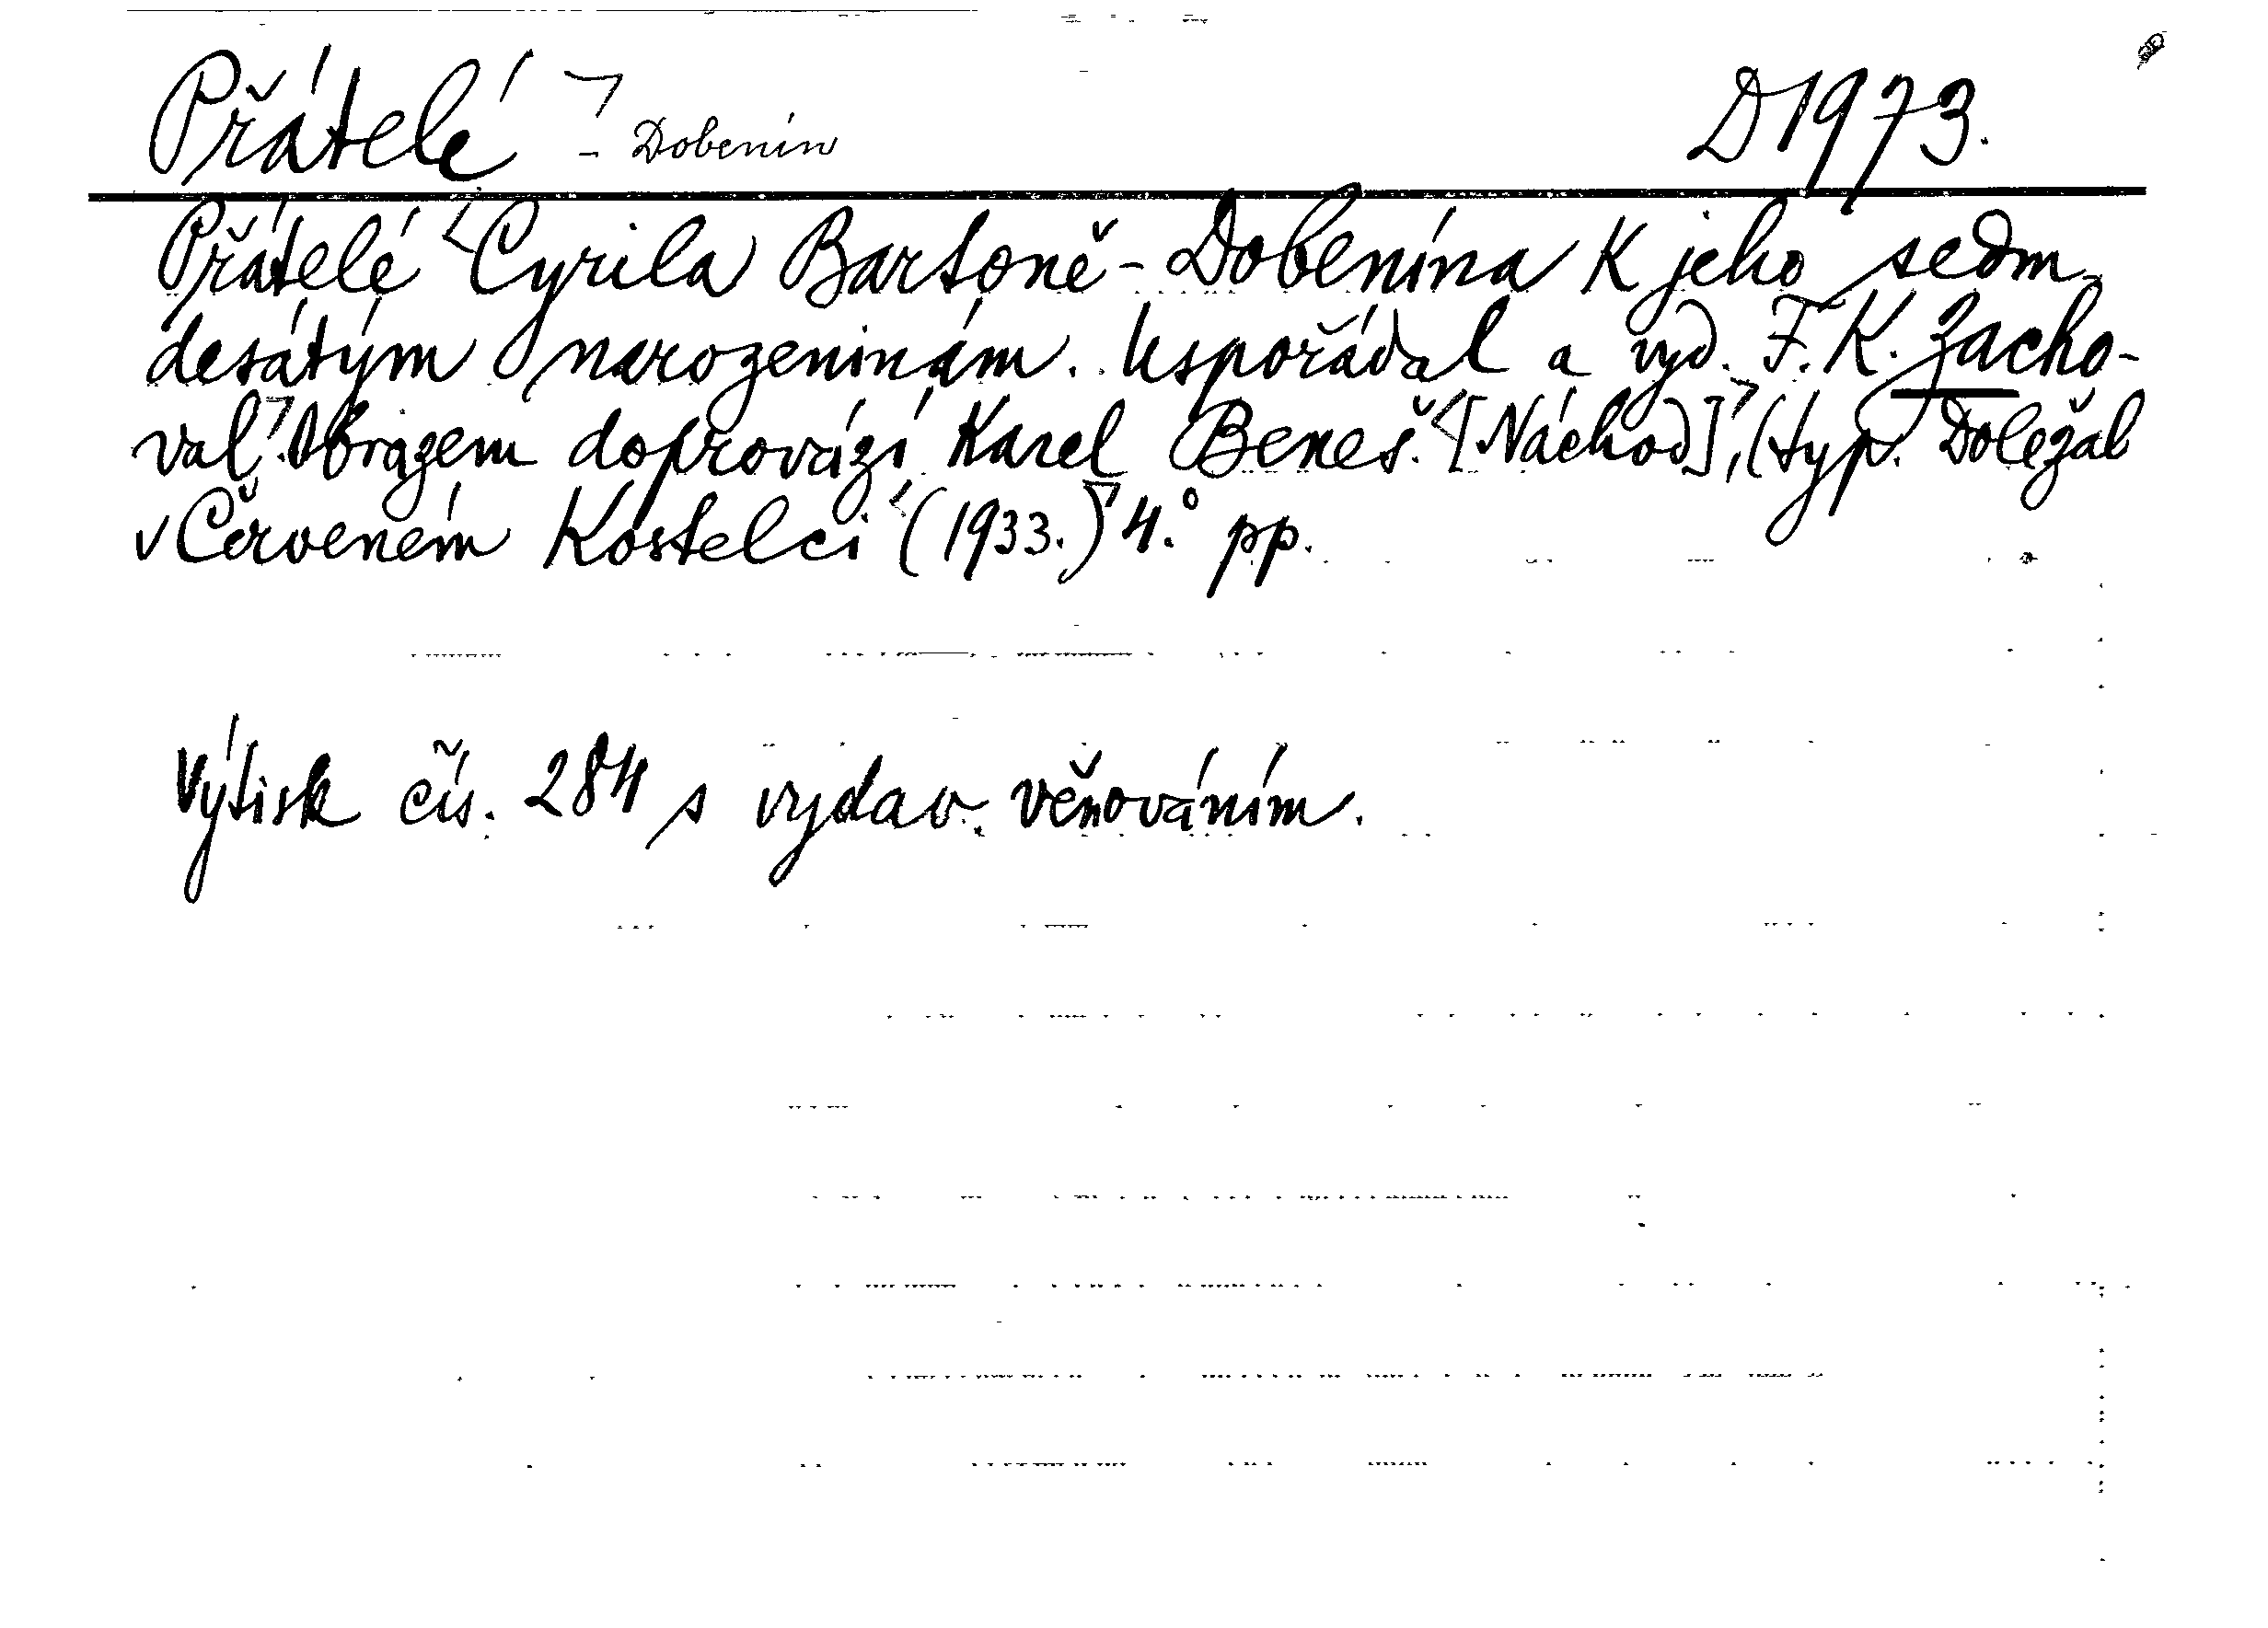 Přátelé - Dobenín D 1973.
Přátelé Cyrila Bartoně-Dobenína K jeho sedm-
desátým narozeninám. Uspořádal a vyd. F. K. Zacho-
val. Obrazem doprovází Karel Beneš. [Náchod], (typ. Doležal
v Červeném Kostelci (1933.) 4.° pp.
Výtisk čís. 284 s vydav. věnováním.